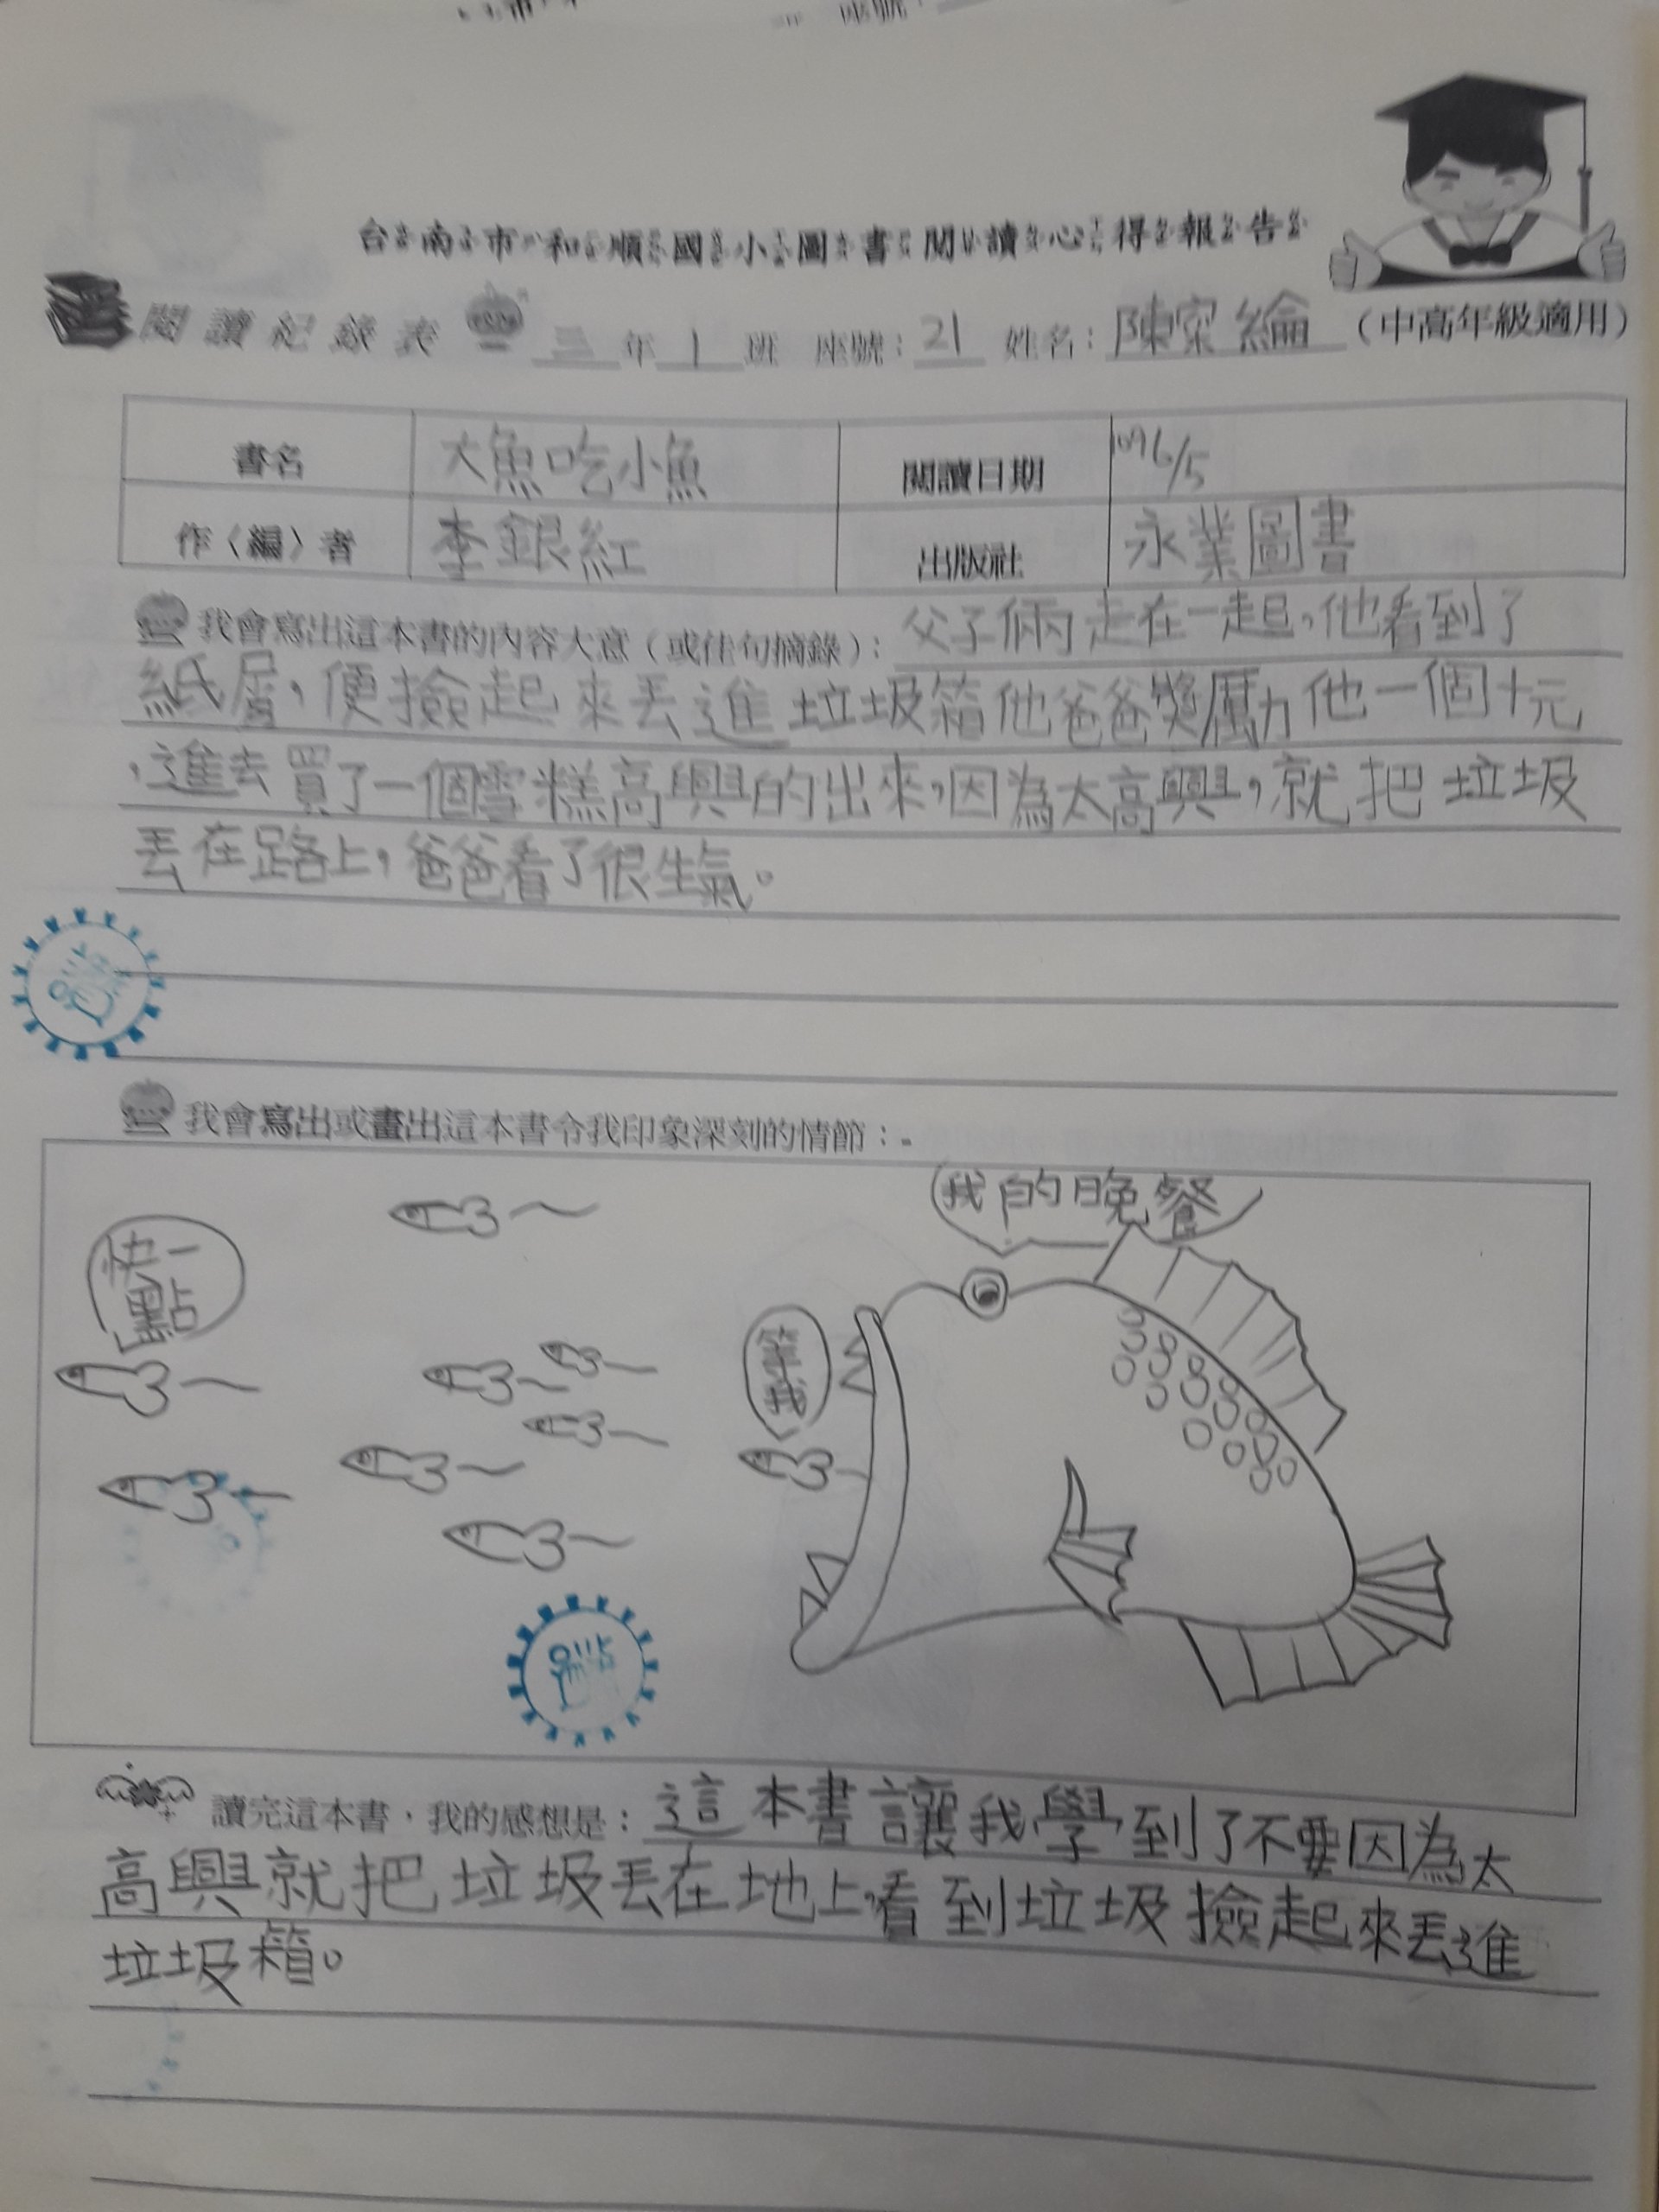 台南市和順國小圖書閱讀心得報告
閱讀紀錄表 三年1班 座號：21 姓名：陳家綸（中高年級適用）
書名 大魚吃小魚 閱讀日期 109 6/5
作〈編〉者 李銀紅 出版社 永業圖書
我會寫出這本書的內容大意（或佳句摘錄）：父子倆走在一起，他看到了
紙屑，便撿起來丟進垃圾箱他爸爸獎勵他一個十元
，進去買了一個雪糕高興的出來，因為太高興，就把垃圾
丟在路上，爸爸看了很生氣。
我會寫出或畫出這本書令我印象深刻的情節：
我的晚餐
快一點
等我
讀完這本書，我的感想是：這本書讓我學到了不要因為太
高興就把垃圾丟在地上，看到垃圾撿起來丟進
垃圾箱。